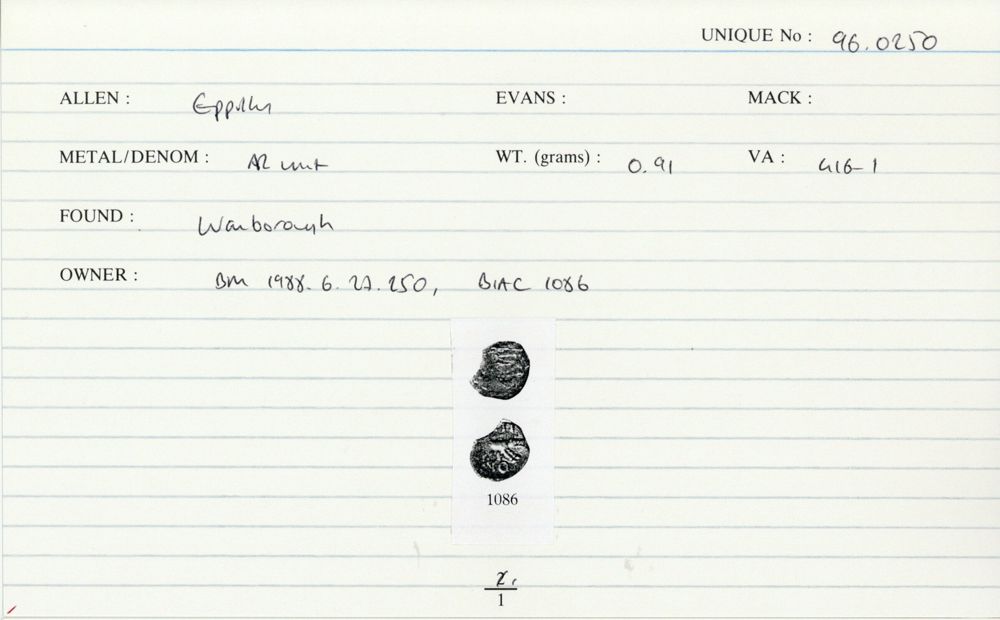 UNIQUE No : 96.0250
ALLEN : Eppillus EVANS : MACK :
METAL/DENOM : AR unit WT. (grams) : 0.91 VA : 416-1
FOUND : Wanborough
OWNER : BM 1988.6.27.250, BIAC 1086
1086
1